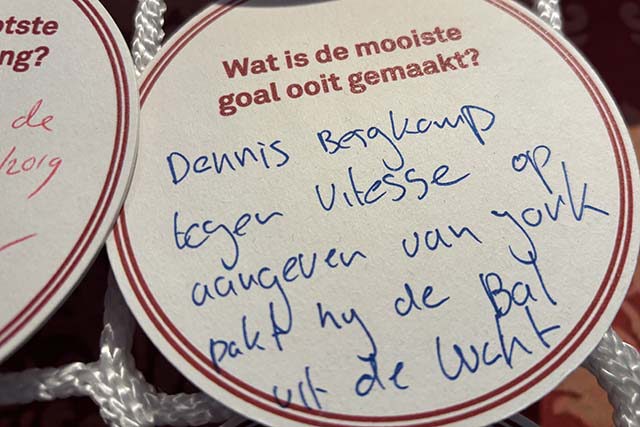 otste
ng?
de
zorg
Wat is de mooiste
goal ooit gemaakt?
Dennis Bergkamp
tegen Vitesse op
aangeven van york
pakt hy de Bal
uit de lucht